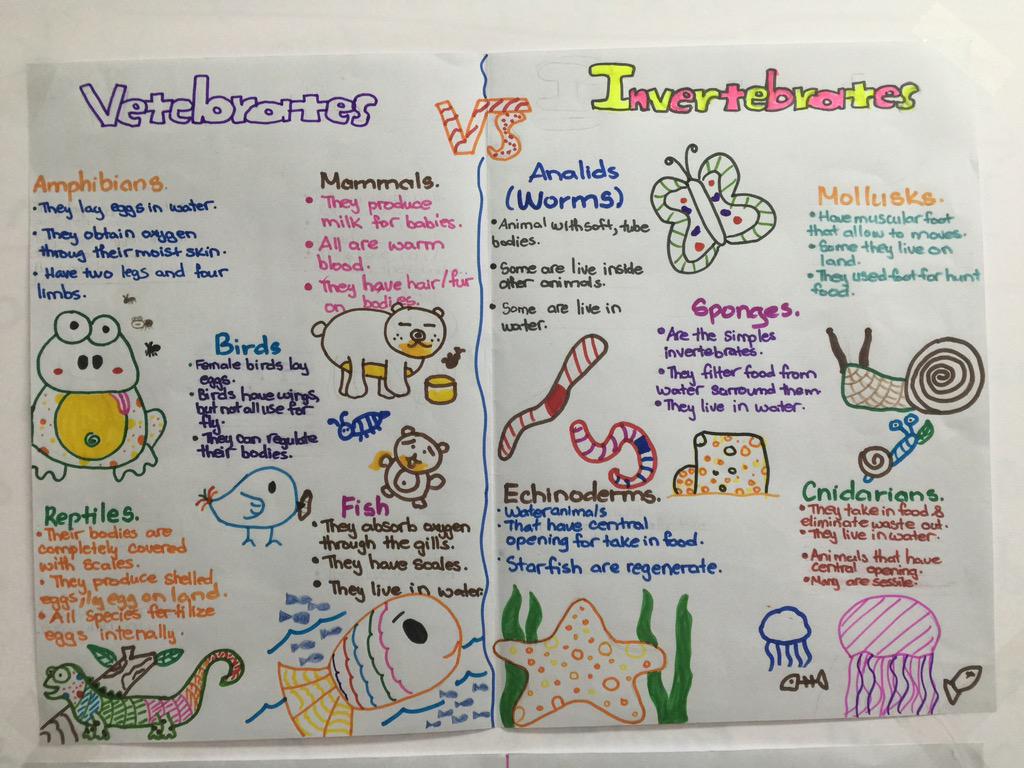 Vetebrates
VS
Invertebrates
Amphibians.
• They lay eggs in water.
• They obtain oxygen
throug their moist skin.
• Have two legs and four
limbs.
Mammals.
• They produce
milk for babies.
• All are warm
blood.
• They have hair/fur
on bodies.
Birds
• Female birds lay
eggs.
• Birds have wings,
but not all use for
fly.
• They can regulate
their bodies.
Reptiles.
• Their bodies are
completely covered
with scales.
• They produce shelled
eggs/lg egg on land.
• All species fertilize
eggs internally.
Fish
• They absorb oxygen
through the gills.
• They have scales.
• They live in water
Analids
(Worms)
• Animal with soft, tube
bodies.
• Some are live inside
other animals.
• Some are live in
water.
Mollusks.
• Have muscular foot
that allow to moves.
• Some they live on
land.
• They used foot for hunt
food.
Sponges.
• Are the simples
invertebrates.
• They filter food from
water sarround them.
• They live in water.
Echinoderms.
• Water animals
• That have central
opening for take in food.
• Starfish are regenerate.
Cnidarians.
• They take in food &
eliminate waste out.
• They live in water.
• Animals that have
central opening.
• Many are sessile.